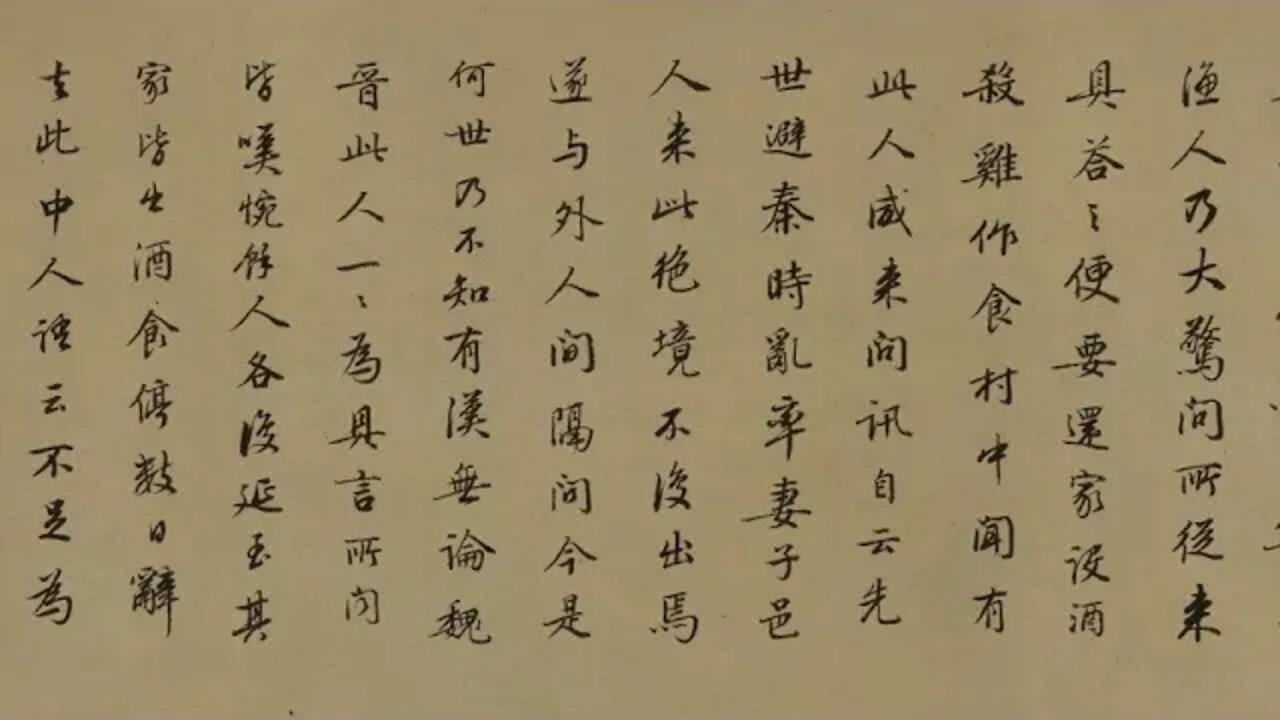 漁人乃大驚問所從来
具荅之便要還家設酒
殺雞作食村中聞有
此人咸来問訊自云先
世避秦時亂率妻子邑
人来此絶境不復出焉
遂与外人間隔問今是
何世乃不知有漢無論魏
晉此人一〻為具言所問
皆嘆惋餘人各復延至其
家皆出酒食停数日辭
去此中人語云不足為